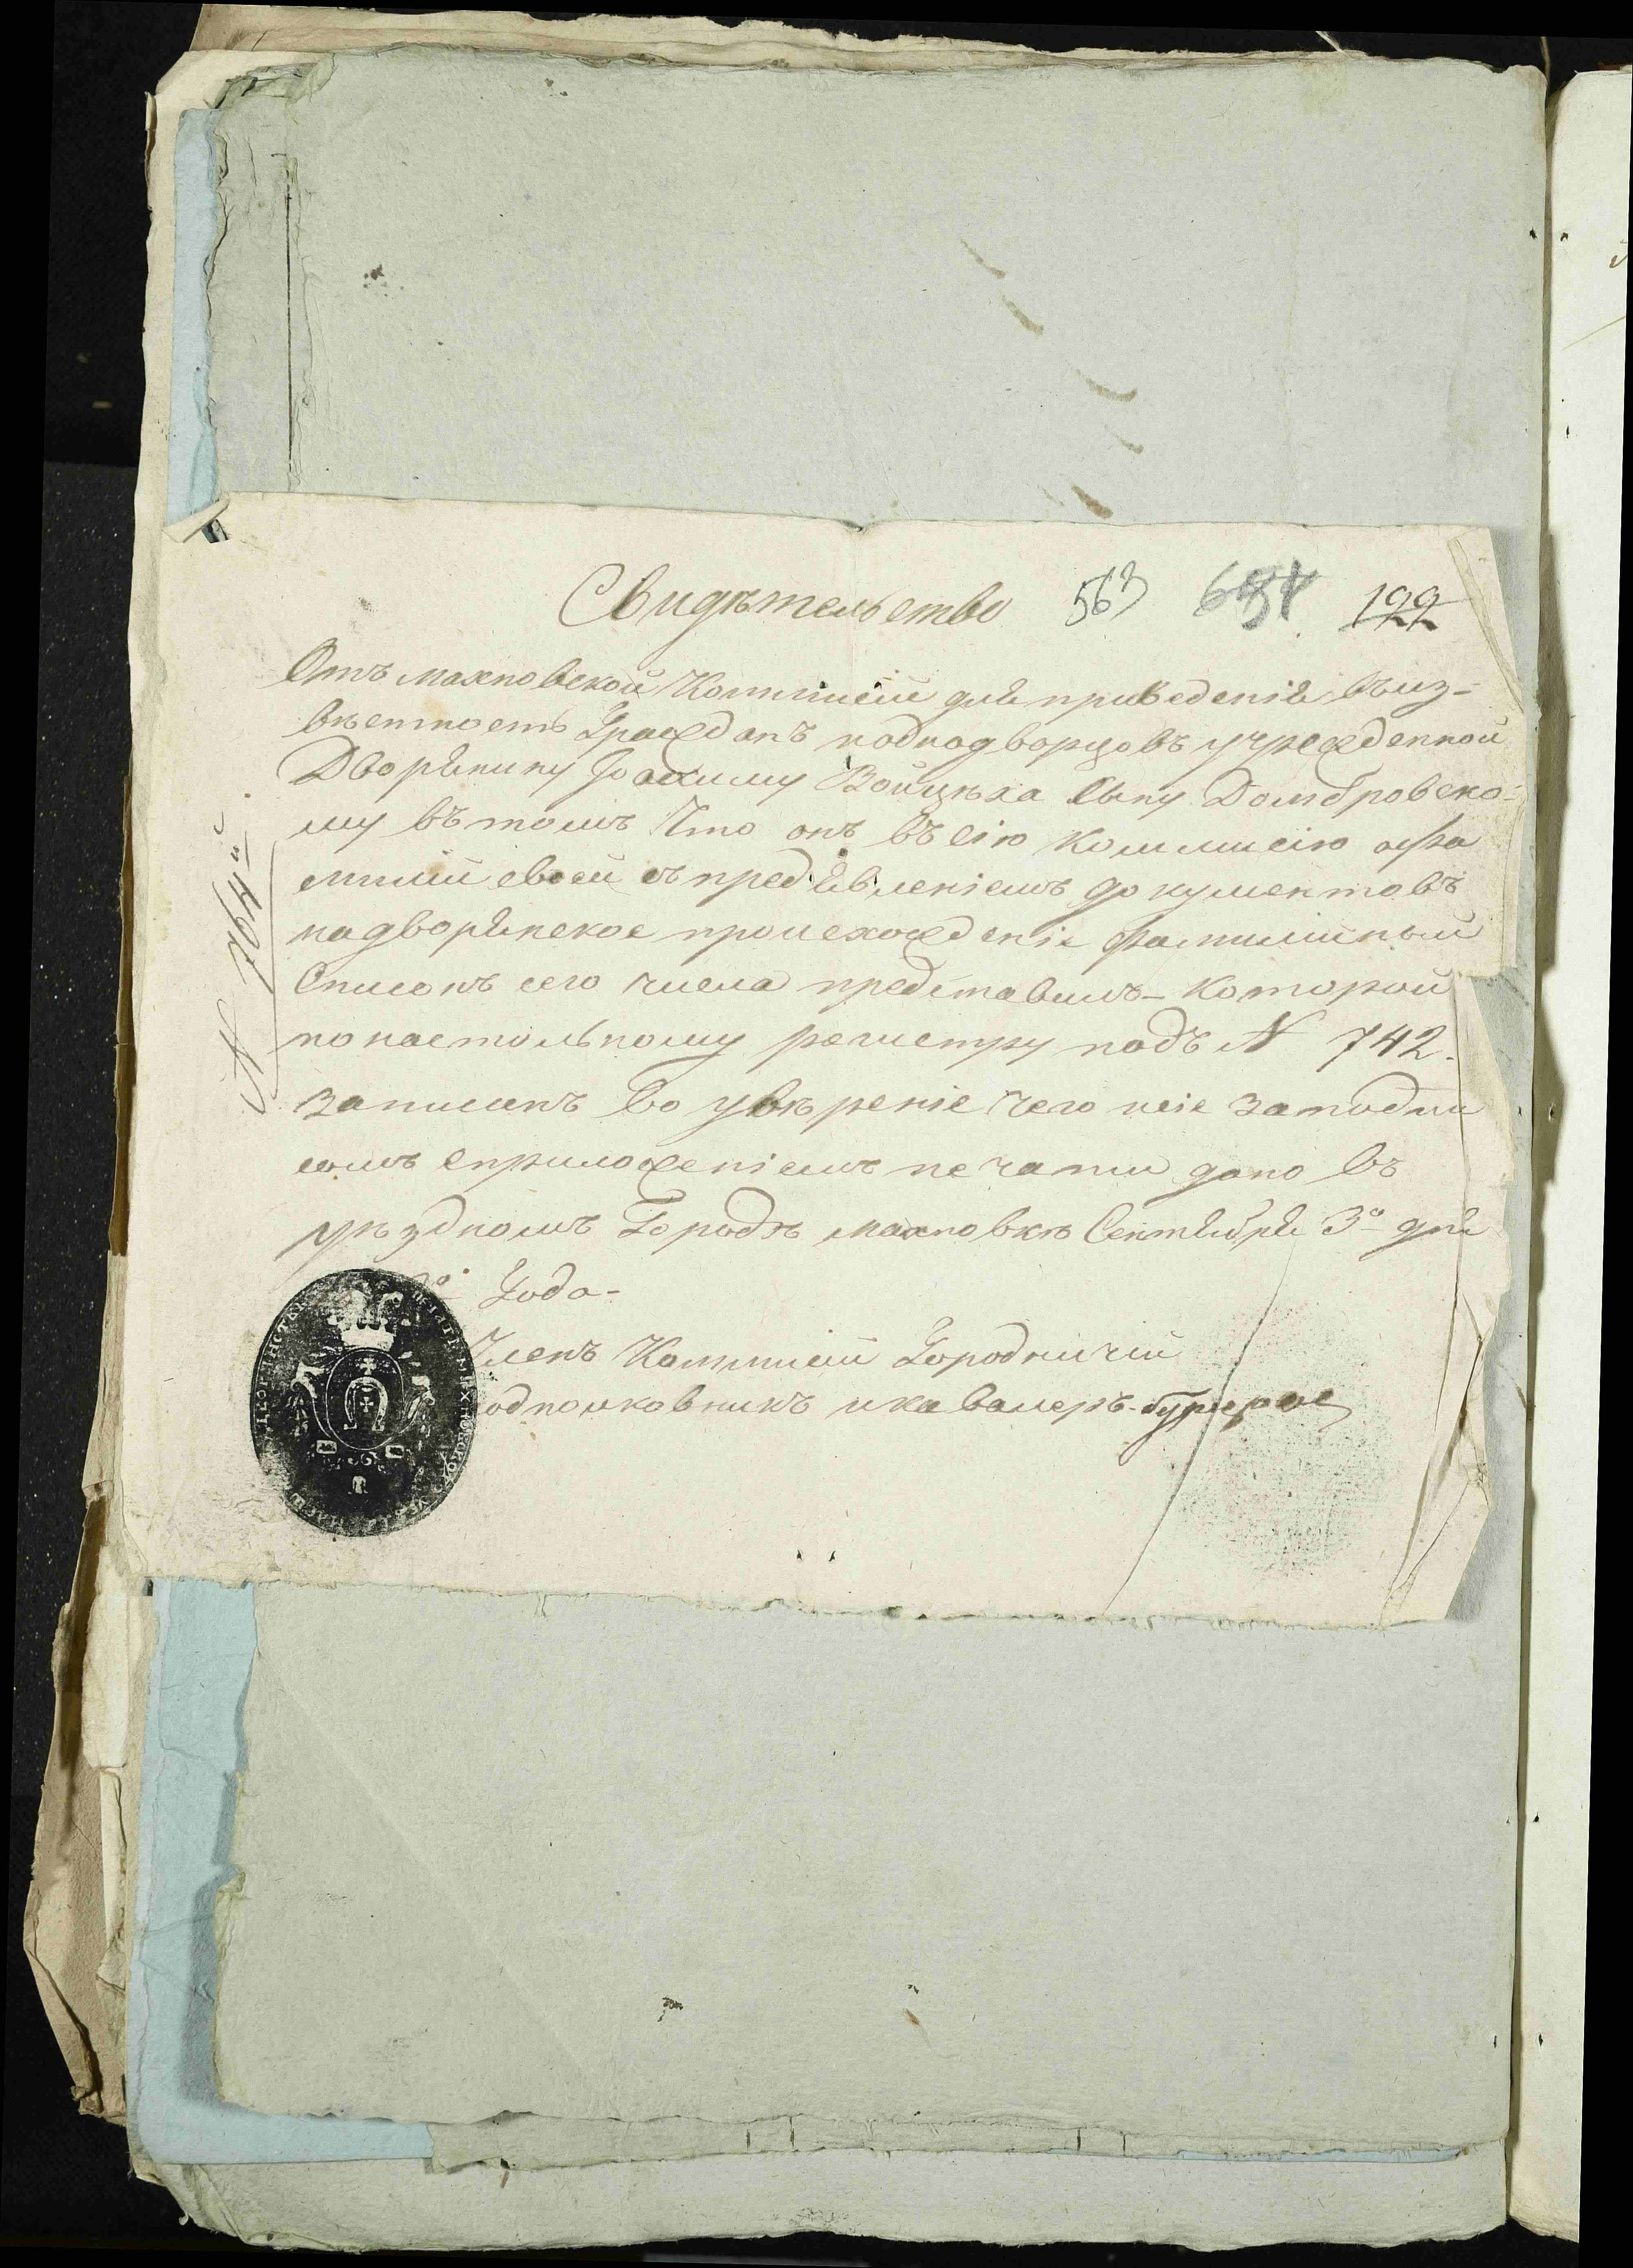 Свидѣтельство 563 199
Отъ Махновской Коммисіи для приведенія въиз-
вѣстность Граждан ъ иоднодворцовъ учрежденной
Дворянину Іоахиму Войцѣха Сыну Домбровско-
му въ томъ Что онъ въ Сію Коммисію офа
миліи своей съ предъявленіемъ документовъ
надворянское происхожденіе фамилійный
Списокъ сего числа представилъ – которой
по настольному регистру подъ N 742.
записанъ во увѣреніе чего сіе заподпи
сомъ сприложеніемъ печати дано въ
уѣздномъ Городѣ Махновкѣ Сентября 3го дня
Года –
Членъ Коммисіи Городничій
одполковникъ икавалеръ
N 764й